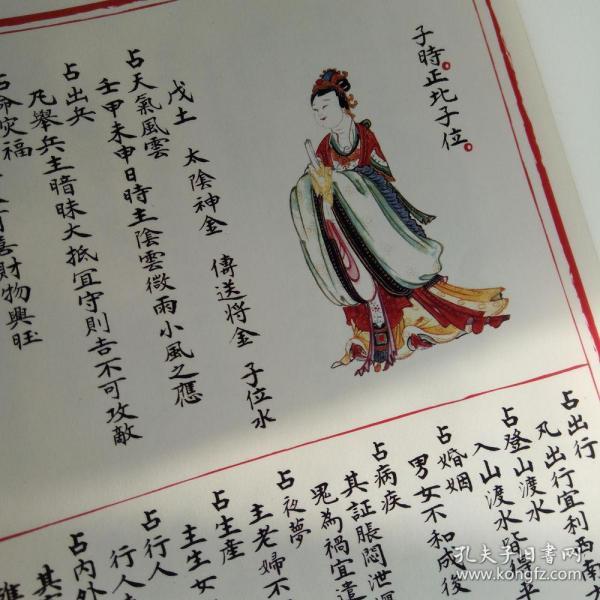 子時正北子位
戊土 太陰神金 傳送將金 子位水
占天氣風雲
壬甲未申日時主陰雲微雨小風之應
占出兵
凡舉兵主暗昧大抵冝守則吉不可攻敵
占命灾福
喜財物興旺
占出行
凡出行宜利西南
占登山渡水
入山渡水
占婚姻
男女不和成後
占病疾
其証脹悶泄
鬼為禍宜
占夜夢
主老婦不
占生産
主生女
占行人
行人
占內外
其
孔夫子旧书网
www.kongfz.com